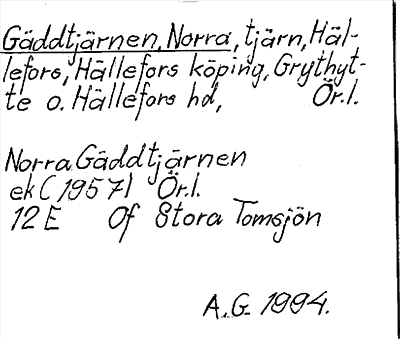 Gäddtjärnen, Norra, tjärn, Häl-
lefors, Hällefors köping, Grythyt-
te o. Hällefors hd, Ör.l.
Norra Gäddtjärnen
ek (1957) Ör.l.
12 E 0f Stora Tomsjön
A.G. 1994.